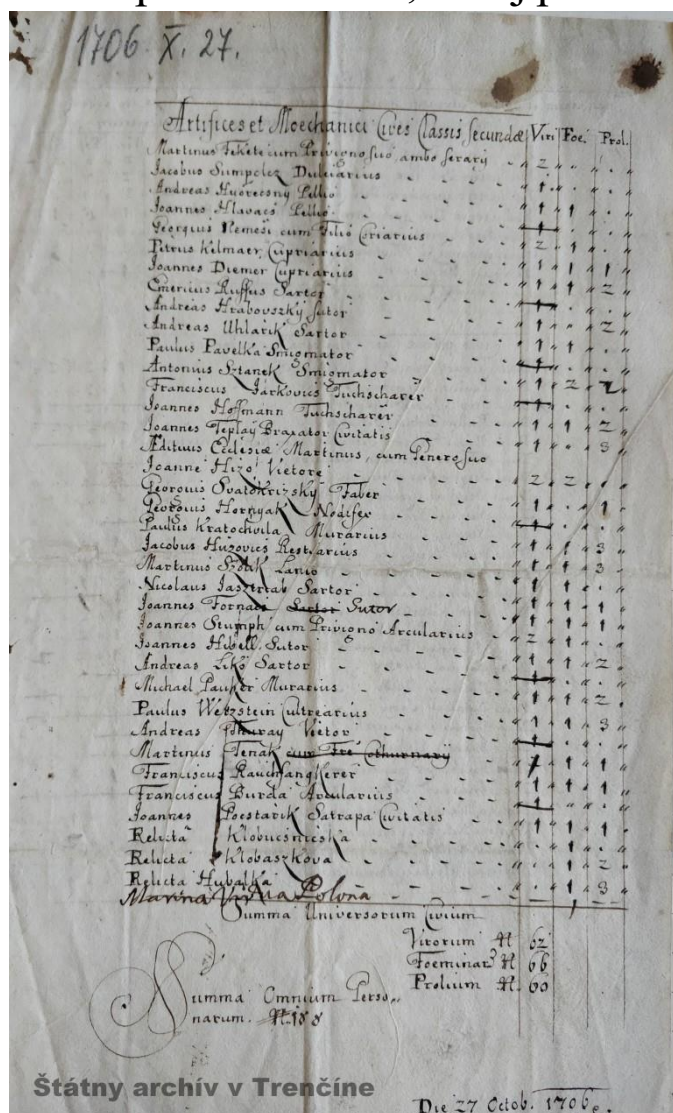 1706 X. 27.
Artifices et Moechanici Cives Classis secundæ Viri Foe. Prol.
Martinus Fekete cum Privigno suo, ambo serarij 2
Jacobus Sumpelcz Dulciarius 1
Andreas Pellio 1
Joannes Hlavacs Pellio 1 1
Georgius Nemesi cum Filio Coriarius
Petrus Kelmaer Cupriarius 2 1
Joannes Diemer Cupriarius 1 1 1
Emericus Ruffus Sartor 1 1 2
Andreas Hrabovszkÿ Sutor
Andreas Uhlarik Sartor 2
Paulus Pavelka Smigmator 1 1
Antonius Sztanek Smigmator
Franciscus Jarkovics Tuchscharer 1 2 2
Joannes Hoffmann Tuchscharer
Joannes Teplaÿ Braxator Civitatis 1 1 2
Ædituus Ecclesiæ Martinus, cum Genero suo 1 3
Joanne Hizo Vietore 2 2
Georgius Svatokrizskÿ Faber
Georgius Hornyak Nodifex 1 1
Paulus Kratochvila Murarius
Jacobus Huzovics Restiarius 1 1 3
Martinus Lanio 1 1 3
Nicolaus Jasztriab Sartor 1
Joannes Fornaci Sutor 1 1 1
Joannes Stumph cum Privigno Arcularius 2 1 1
Joannes Hibell Sutor
Andreas Liko Sartor 1 1 2
Michael Pauker Murarius
Paulus Wetzstein Cultrearius 1 1 2
Andreas Thuray Vietor 1 1 3
Martinus Tenak cum Fre Cothurnarij
Franciscus Rauchfangkerer 1 1 1
Franciscus Burda Arcularius 1 1 1
Joannes Pocstarik Satrapa Civitatis
Relicta Klobucsnicska 1 1
Relicta Klobaszkova 1 2
Relicta Hubalka 1 3
Marina Polona 1
Summa Universorum Civium
Virorum N 62
Foeminar N 66
Prolium N. 60
Summa Omnium Perso„
narum. N. 188
Štátny archív v Trenčíne
Die 27 Octob. 1706